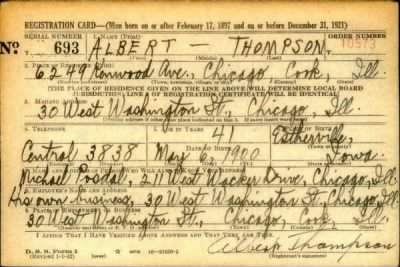 REGISTRATION CARD—(Men born on or after February 17, 1897 and on or before December 31, 1921)
SERIAL NUMBER 1. NAME (Print) ORDER NUMBER
No. 693 ALBERT — THOMPSON 10573
(First) (Middle) (Last)
2. PLACE OF RESIDENCE (Print)
6249 Kenwood Ave., Chicago Cook, Ill.
[THE PLACE OF RESIDENCE GIVEN ON THE LINE ABOVE WILL DETERMINE LOCAL BOARD
JURISDICTION; LINE 2 OF REGISTRATION CERTIFICATE WILL BE IDENTICAL]
3. MAILING ADDRESS
30 West Washington St., Chicago, Ill.
4. TELEPHONE 5. AGE IN YEARS PLACE OF BIRTH
41 Estherville,
DATE OF BIRTH
Central 3838 May 6, 1900 Iowa
Michael 211 West Wacker Drive, Chicago, Ill.
8. EMPLOYER'S NAME AND ADDRESS
His own business, 30 West Washington St, Chicago, Ill.
9. PLACE OF EMPLOYMENT OR BUSINESS
30 West Washington St., Chicago, Cook, Ill.
I AFFIRM THAT I HAVE VERIFIED ABOVE ANSWERS AND THAT THEY ARE TRUE.
D. S. S. Form 1
(Revised 1-1-42) (over)
Albert Thompson
(Registrant's signature)